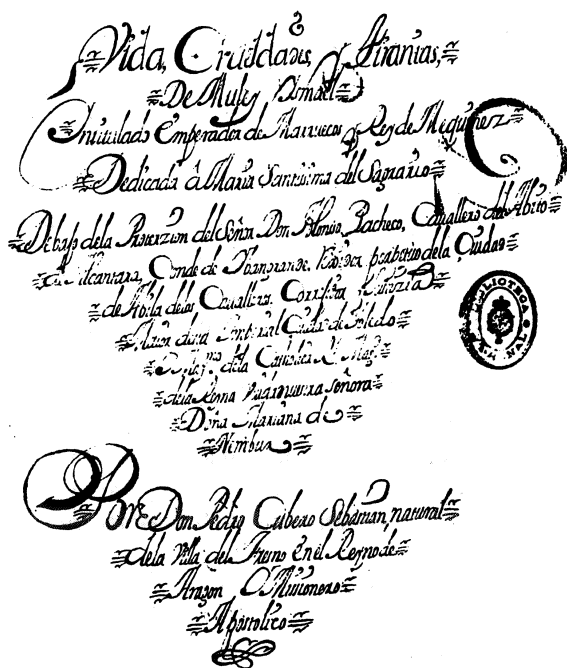 Vida, Crueldades, y tiranias,
De Muley Ismael
Intitulado Emperador de Marruecos y Rey de Mequinez
Dedicada â Maria Santissima del Sagrario
Debajo dela Proteczion del Señor Don Alonso Pacheco, Cavallero del Abito
de Alcantara, Conde de Ybangrande, Perpetuo dela Ciudad
de Abila delos Cavalleros, Corregidor
Maior desta Imperial Ciudad de Toledo
dela Catholica
dela Reina Viuda nuestra señora
Doña Mariana de
Nimburg
BIBLIOTECA NACIONAL
Por Don Pedro Cubero Sebastian, natural
dela Villa del Fresno En el Reyno de
Aragon Missionero
Apostolico